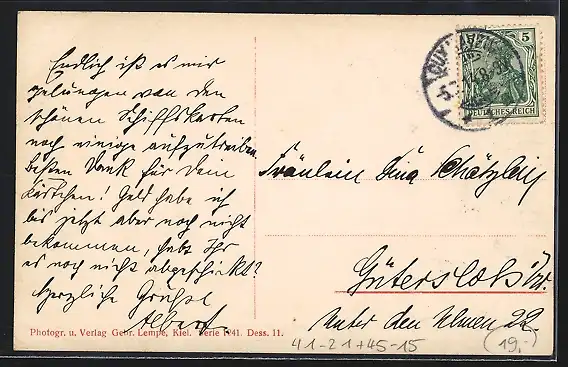 Endlich ist es mir
gelungen von den
schönen Schiffskarten
noch einige aufzutreiben.
Besten Dank für Dein
Kärtchen! Geld habe ich
bis jetzt aber noch nicht
bekommen, habt Ihr
es noch nicht abgeschickt?
Herzliche Grüße
Albert.
Photogr. u. Verlag Gebr. Lempe, Kiel. Serie 1941. Dess. 11.
5
DEUTSCHES REICH
Fräulein Lina Schätzlein
Gütersloh i/W.
Unter den Ulmen 22.
41-21+45-15
(19,-)